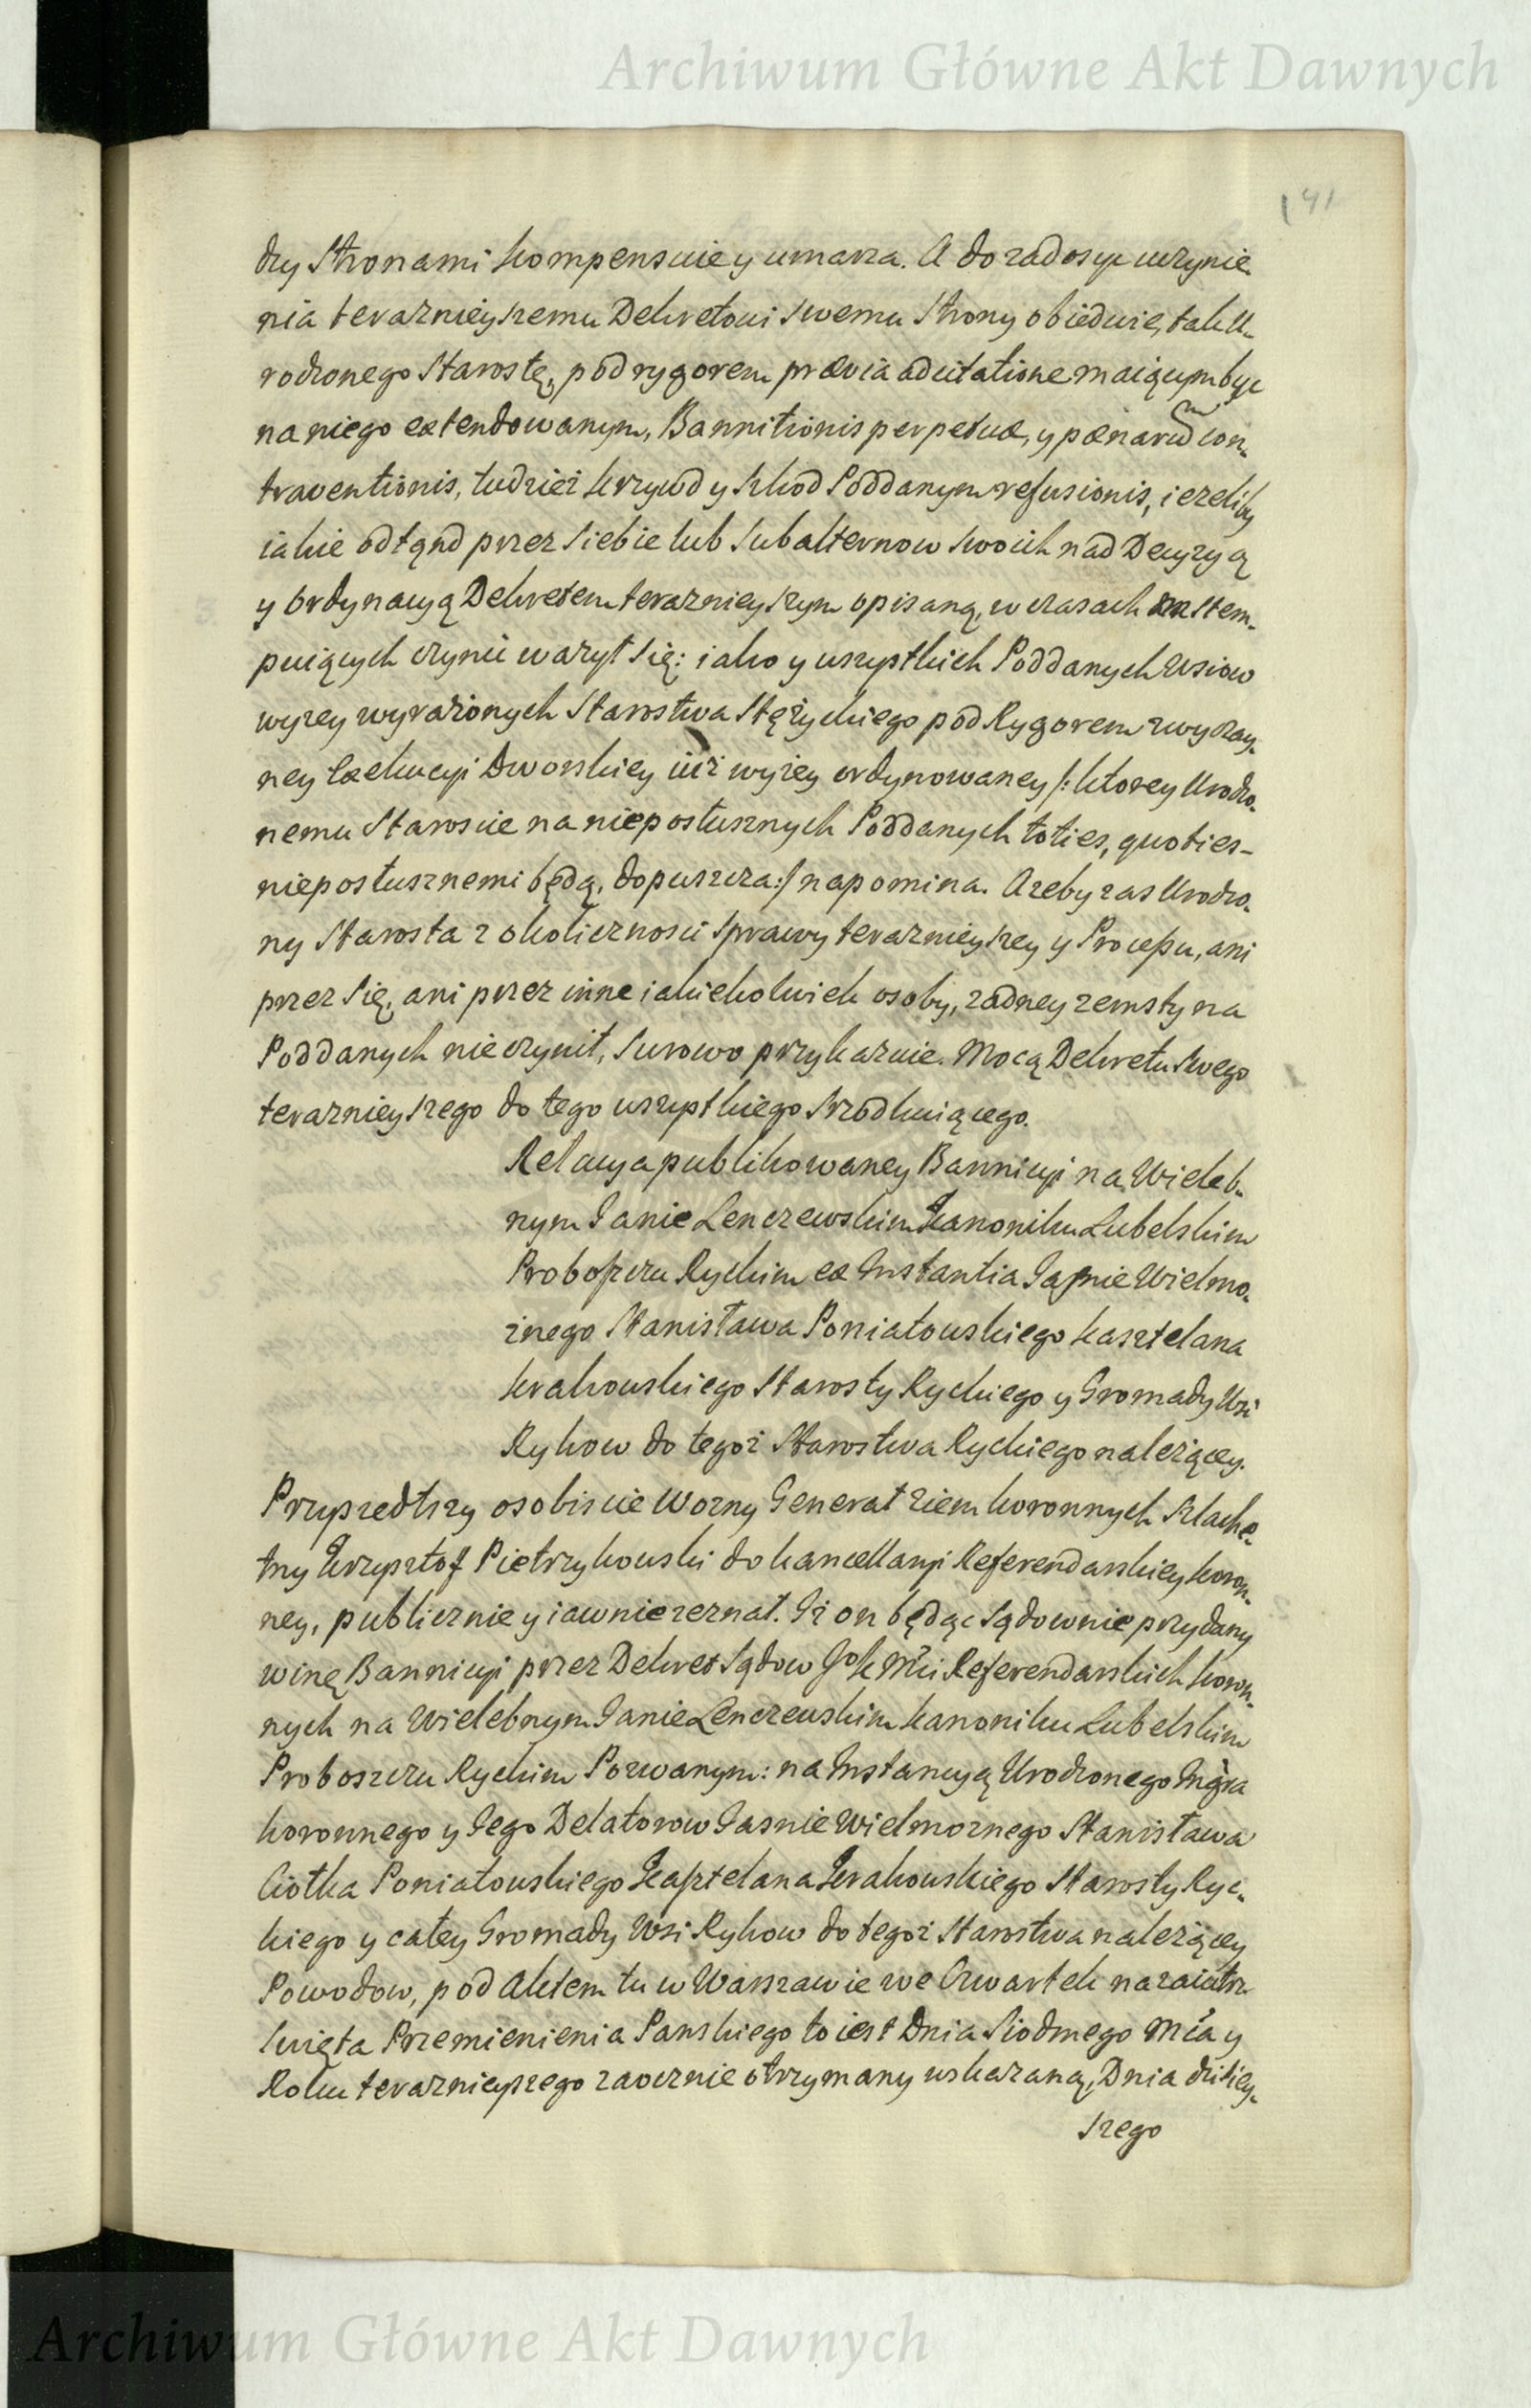 Archiwum Główne Akt Dawnych
141
dzy Stronami kompensuie y umarza. A do zadosyc uczynie-
nia teraznieyszemu Dekretowi swemu Strony obiedwie, tak U-
rodzonego Starostę, pod rygorem prævia adcitatione maiącym byc
na niego extendowanym, Bannitionis perpetuæ, y pænarum con-
traventionis, tudziez krzywd y szkod Poddanym refusionis, iezeliby
iakie odtąd przez siebie lub Subalternow swoich nad Decyzyą
y Ordynacyą Dekretem terazniejszym opisaną, w czasach nastem-
puiących czynic wazył się: iako y wszystkich Poddanych Wsiow
wyzey wyrażonych Starostwa Stężyckiego pod Rygorem zwyczay-
ney Exekucyi Dworskiey iuż wyżey ordynowaney /: ktorey Urodzo-
nemu Staroscie na nieposłusznych Poddanych toties, quoties-
nieposłusznemi będą, dopuszcza :/ napomina. Azeby zas Urodzo-
ny Starosta z okolicznosci sprawy terazniejszey y Processu, ani
przez się, ani przez inne iakiekolwiek osoby, zadney zemsty na
Poddanych nie czynił, surowo przykazuie. Mocą Dekretu swego
teraznieyszego do tego wszystkiego srzodkuiącego.
Relacya publikowaney Bannicyi na Wieleb-
nym Janie Lenczewskim Kanoniku Lubelskim
Proboszczu Ryckim ex Instantia Jasnie Wielmo-
żnego Stanisława Poniatowskiego Kasztelana
Krakowskiego Starosty Ryckiego y Gromady Wsi
Rykow do tegoż Starostwa Ryckiego należącey.
Przyszedłszy osobiscie Wozny Generał Ziem Koronnych Szlache-
tny Krzysztof Pietrzykowski do Kancellaryi Referendarskiey Koron-
ney, publicznie y iawnie zeznał. Iż on będąc sądownie przydany
winę Bannicyi przez Dekret Sądow Jo K Mci Referendarskich Koron-
nych na Wielebnym Janie Lenczewskim Kanoniku Lubelskim
Proboszczu Ryckim Pozwanym: na Instancyą Urodzonego Insgra
Koronnego y Jego Delatorow Jasnie Wielmoznego Stanisława
Ciołka Poniatowskiego Kasztelana Krakowskiego Starosty Ryc-
kiego y całey Gromady Wsi Rykow do tegoż Starostwa należącey
Powodow, pod Aktem tu w Warszawie we Czwartek nazaiutrz
Swięta Przemienienia Panskiego to iest Dnia Siodmego Mca y
Roku teraznieyszego zaocznie otrzymany wskazaną, Dnia dzisiey-
szego
Archiwum Główne Akt Dawnych